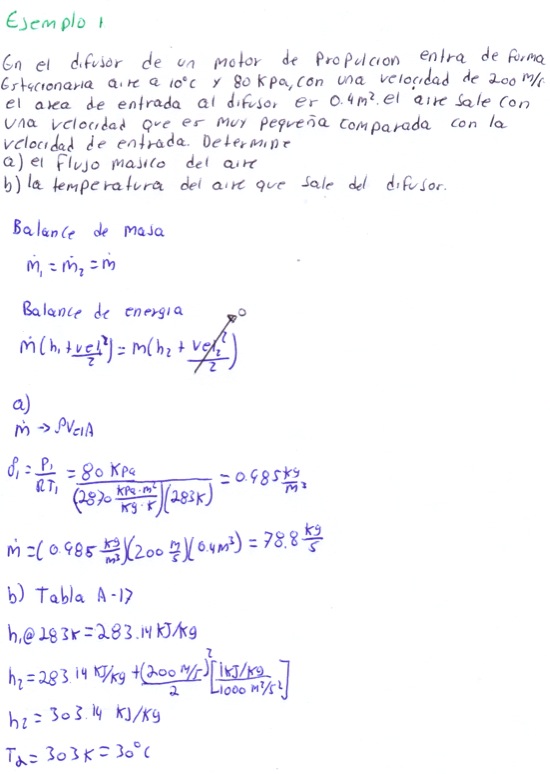 Ejemplo 1
En el difusor de un motor de Propulcion entra de forma
Estacionaria aire a 10°C y 80 KPa, con una velocidad de 200 m/s
el area de entrada al difusor er 0.4m². el aire Sale con
una velocidad que es muy pequeña comparada con la
velocidad de entrada. Determine
a) el Flujo masico del aire
b) la temperatura del aire que sale del difusor.
Balance de masa
ṁ₁ = ṁ₂ = ṁ
Balance de energia
ṁ(h₁ + vel₁²/2) = m(h₂ + vel₂²/2) → 0
a)
ṁ → ρVelA
ρ₁ = P₁/RT₁ = 80 KPa / (2870 KPa·m²/Kg·K)(283K) = 0.985 kg/m³
ṁ = (0.985 kg/m³)(200 m/s)(0.4m³) = 78.8 kg/s
b) Tabla A-17
h₁@283K = 283.14 KJ/Kg
h₂ = 283.14 KJ/Kg + (200 m/s)²/2 [1KJ/Kg / 1000 m²/s²]
h₂ = 303.14 KJ/Kg
T₂ = 303K = 30°C